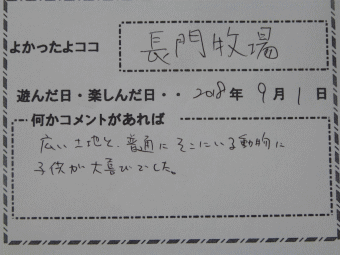 よかったよココ 長門牧場
遊んだ日・楽しんだ日・・2018年9月1日
何かコメントがあれば
広い土地と、普通にそこにいる動物に
子供が大喜びでした。